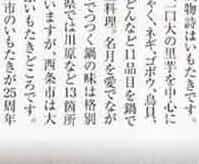 物詩はいもたきです。
二口大の里芋を中心に
ゃく、ネギ、ゴボウ、鳥貝、
など11品目を鍋で
料理。名月を愛でなが
でつつく鍋の味は格別
県では川原など13箇所
いますが、西条市は大
いもたきどころです。
市のいもたきが25周年